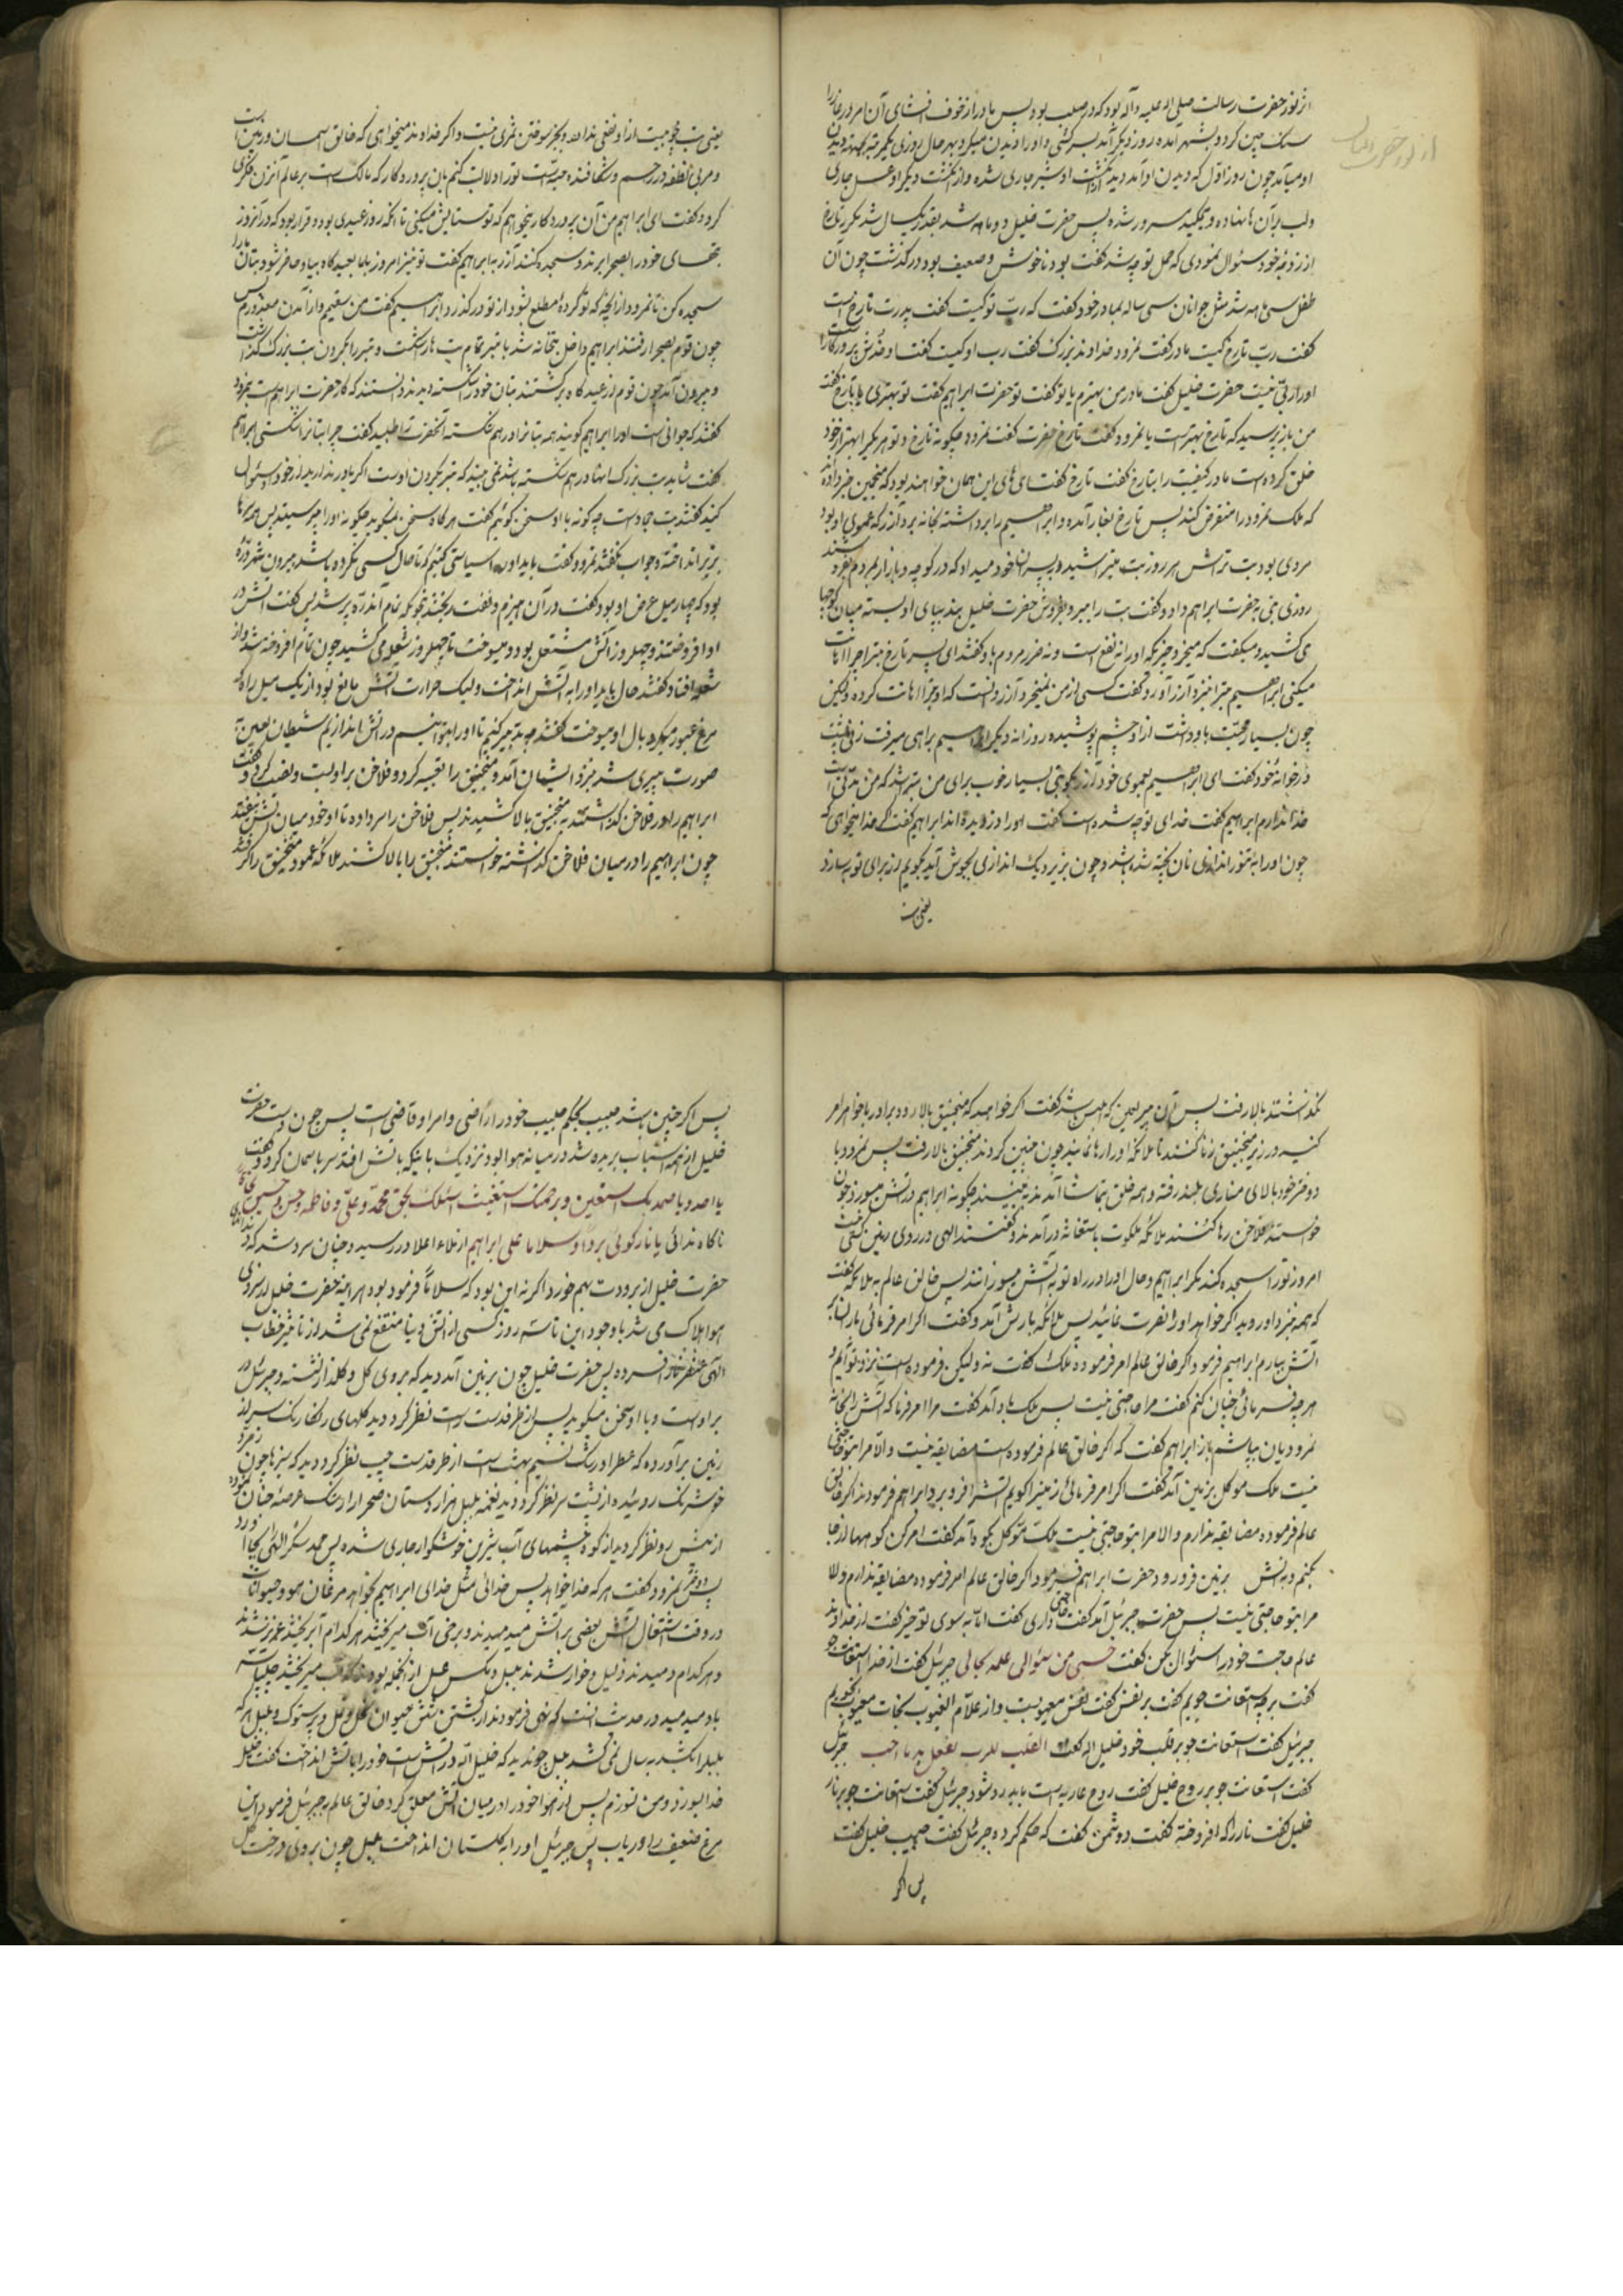 از نور حضرت رسالت صلی الله علیه وآله بود که در صلب بود پس مادر از خوف افشای آن امر در غار را
سنگ چین کرد و بشهر آمده روز دیگر آمد بسرکشی و او را دیدن میکرد بهر حال روزی یکمرتبه بجهته دیدن
او میآمد چون روز اول که دیدن او آمد دید از انگشت او شیر جاری شده و از انگشت دیگر او عسل جاری
ولب بر آن نهاده و میمکید مسرور شده پس حضرت خلیل دو ماهه شد بقدر یکسال شد مکرر تارخ
از زوجه خود سئوال نمودی که حمل تو چه شد گفت بود ناخوش و ضعیف بود درگذشت چون آن
طفل سی ماهه شد مثل جوانان سی ساله بمادر خود گفت که رب تو کیست گفت پدرت تارخ است
گفت رب تارخ کیست مادر گفت نمرود خداوند بزرگ گفت رب او کیست گفتا
او را ربی نیست حضرت خلیل گفت مادر من بهترم یا تو گفت تو حضرت ابراهیم گفت تو بهتری یا تارخ گفت
من باز پرسید که تارخ بهتر است یا نمرود گفت تارخ حضرت گفت نمرود چگونه تارخ و تو هر یکی را بهتر از خود
خلق کرده است مادر کیفیت را بتارخ گفت تارخ گفت ای های این همان خواهد بود که منجمین خبر داده اند
که ملک نمرود را منقرض کند پس تارخ بغار آمده و ابراهیم را برداشته بخانه برد آزر که عموی او بود
مردی بود بت تراش هر روز بت میتراشید و به پسران خود میداد که در کوچه و بازار بمردم بفروشند
روزی بتی به حضرت ابراهیم داد و گفت بت را ببر و بفروش حضرت خلیل بند بپای او بسته میان کوچها
می کشید و میگفت که میخرد چیزیکه او را نه نفع است و نه ضرر مردم گفتند ای پسر تارخ بتر اچرا اهانت
میکنی ابراهیم بت را نزد آزر آورد گفت کسی از من نمیخرد آزر دانست که او بت را اهانت کرده ولیکن
چون بسیار محبت باو داشت از او چشم پوشیده روزانه دیگر ابراهیم براهی میرفت زنی
در خانه خود گفت ای ابراهیم بعموی خود آزر بگو بتی بسیار خوب برای من بتراشد که من مدتی است
خدا ندارم ابراهیم گفت خدای تو چه شده است گفت او را دزدیده اند ابراهیم گفت که خدا میخواهی که
چون او را به تنور اندازی نان پخته شده باشد و چون بزیر دیک اندازی بجوش آید بگویم آزر برای تو بسازد
یعنی بت
یعنی بت چوبیست از او نفعی ندارد و بجز سوختن ثمری نیست و اگر خداوند میخواهی که خالق آسمان و زمین است
و مربی نطفه در رحم و شکافنده حبه است تو را دلالت کنم بان پروردگار که مالک است بر عالم آنزن فکری
کرد و گفت ای ابراهیم من آن پروردگار میخواهم که تو ستایش میکنی تا آنکه روز عیدی بود و قرار بود که در آنروز
بتهای خود را بصحرا برند و سجده کنند آزر به ابراهیم گفت تو نیز امروز با ما بعیدگاه بیا و حاضر شو و بتان ما را
سجده کن تا نمرود از آنچه که تو کرده مطلع نشود از تو درگذرد ابراهیم گفت من سقیم و از آمدن معذورم پس
چون قوم بصحرا رفتند ابراهیم داخل بتخانه شد با تبر تمام بت ها را شکست و تبر را بگردن بت بزرگ گذاشت
و بیرون آمد چون قوم از عیدگاه برگشتند بتان خود را شکسته دیدند دانستند که کار حضرت ابراهیم است بنمرود
گفتند که جوانی است او را ابراهیم گویند همه بتانرا درهم شکسته آنحضرت را طلبید گفت چرا بتانرا شکستی ابراهیم
گفت شاید بت بزرگ اینها را در هم شکسته باشد نمی بینید که تبر بگردن اوست اگر باور ندارید از خود او سئوال
کنید گفتند بت جماد است چه گونه با او سخن گوئیم گفت هرگاه سخن نمیگوید چگونه او را میپرستید پس همه سرها
بزیر انداخته و جواب نگفتند نمرود گفت باید او را سیاستی کنیم که تا حال کسی نکرده باشد بیرون شهر درهٔ
بود که چهار میل عرض او بود گفت در آن هیزم و نفت ریختند بنحویکه تمام آندره پر شد پس گفت آتش در
او افروختند و چهل روز آتش مشتعل بود و میسوخت تا چهل روز شعله می کشید چون تمام افروخته شد و از
شعله افتاد گفتند حال باید او را به آتش انداخت ولیک حرارت آتش مانع بود از یک میل راه که
مرغ عبور میکرد بال او میسوخت گفتند چه تدبیر کنیم تا او را بتوانیم در آتش اندازیم شیطان لعین به
صورت پیری شد نزد ایشان آمد و منجنیق را تعبیه کرد و فلاخن بر او بست و نصب کرد و گفت
ابراهیم را در فلاخن گذاشته به منجنیق بالا کشیدند پس فلاخن را سر داده تا او خود میان آتش بیفتد
چون ابراهیم را در میان فلاخن گذاشته خواستند منجنیق را بالا کشند ملائکه عمود منجنیق را گرفتند
نگذاشتند بالا رفت پس آن پیر لعین که ابلیس باشد گفت اگر خواهید که منجنیق بالا رود برادر با خواهر امر
کنید در زیر منجنیق زنا کنند تا ملائکه او را رها نمایند چون چنین کردند منجنیق بالا رفت پس نمرود با
دو دختر خود بالای مناری بلند رفته و همه خلق بتماشا آمدند به بینند چگونه ابراهیم در آتش میسوزد چون
خواستند فلاخن رها کنند ملائکه ملکوت باستغاثه درآمدند و گفتند الهی در روی زمین کسی نیست
امروز تو را سجده کند مگر ابراهیم و حال او را در راه تو به آتش میسوزانند پس خالق عالم به ملائکه گفت
که همه نزد او روید اگر خواهد او را نصرت نمائید پس ملائکه بارش آمد و گفت اگر امر فرمائی باران بر
آتش ببارم ابراهیم فرمود اگر خالق عالم امر فرموده ملک گفت نه ولیکن فرموده است نزد تو آیم و
هرچه فرمائی چنان کنم گفت مرا حاجتی نیست پس ملک باد آمد گفت مرا امر فرما که آتش را بخانه
نمرودیان بپاشم باز ابراهیم گفت که اگر خالق عالم فرموده است مضایقه نیست والا مرا بتو حاجتی
نیست ملک موکل بزمین آمد گفت اگر امر فرمائی زمین را گویم آتش را فرو برد ابراهیم فرمودند اگر خالق
عالم فرموده مضایقه ندارم والا مرا بتو حاجتی نیست ملک موکل بکوه آمد گفت امر کن کوهها از جا
بکنم و به آتش بزمین فرو رود حضرت ابراهیم فرمود اگر خالق عالم امر فرموده مضایقه ندارم والا
مرا بتو حاجتی نیست پس حضرت جبرئیل آمد گفت حاجتی داری گفت اما به سوی تو خیر گفت از خداوند
عالم حاجت خود را سئوال بکن گفت حسبی من سئوالی علمه بحالی جبرئیل گفت از خدا استعانت جو
گفت بر چه استعانت جویم گفت بر نفس گفت نفس معیوبیست و از علام الغیوب نجات معیوب نجویم
جبرئیل گفت استعانت جو بر قلب خود خلیل الله گفت القلب للرب یفعل به ما احب جبرئیل
گفت استعانت جو بر روح خلیل گفت روح عاریه است باید رد شود جبرئیل گفت استعانت جو بر نار
خلیل گفت نار را که افروخته گفت دشمن گفت که حکم کرده جبرئیل گفت حبیب خلیل گفت
پس اگر
پس اگر چنین باشد حبیب بحکم حبیب خود راضی و امر او قاضی است پس چون دست حضرت
خلیل از همه اسباب بریده شد در میانه هوا بود و نزدیک باینکه باتش افتد سر باسمان کرد و گفت
یا احد و یا صمد بک استعین و برحمتک استغیث اسئلک بحق محمد و علی و فاطمه و حسن و حسین
ناگاه ندائی یا نار کونی بردا و سلاما علی ابراهیم از ملاء اعلا در رسید و چنان سرد شد که
حضرت خلیل از برودت بهم خورد اگر نه این بود که سلاما فرموده بود هر آینه حضرت خلیل از سردی
هوا هلاک می شد با وجود این تا سه روز کسی از آتش دنیا منتفع نمی شد از تاثیر خطاب
الهی عنصر نار افسرده پس حضرت خلیل چون بزمین آمد دید که بروی گل و گلزار نشسته و جبرئیل در
برابر اوست و با او سخن میگوید پس از طرف دست راست نظر کرد دید گلهای رنگارنگ سر از
زمین برآورده که عطر او رشک نسیم بهشت است از طرف دست چپ نظر کرد دید که سبزها چون زمرد
خوشرنگ روئیده از پشت سر نظر کرد دید نغمه بلبل هزار دستان صحرا را رشک عرصهٔ جنان نموده
از پیش رو نظر کرد دید از کوه چشمهای آب شیرین خوشگوار جاری شده پس حمد شکر الهی بجا آورد
پس دختر نمرود گفت هر که خدا خواهد پس خدائی مثل خدای ابراهیم بخواهد مرغان هوا و حیوانات
در وقت اشتعال آتش بعضی بر آتش میدمیدند و برخی آب میریختند هر کدام آب ریختند عزیز شدند
و هر کدام دمیدند ذلیل و خوار شدند بلبل و مگس عسل از آنجمله بودند که آب میریختند چلپاسه
باد میدمید در حدیث است که نهی فرمودند از کشتن شش حیوان نحل و نمل و پرستوک و بلبل هر که
بلبل را بکشد به سال نمی کشد بلبل چون دید که خلیل الله در آتش است خود را بآتش انداخت گفت خلیل
خدا بسوزد و من نسوزم پس از هوا خود را در میان آتش معلق کرد خالق عالم به جبرئیل فرمود این
مرغ ضعیف را دریاب پس جبرئیل او را به گلستان انداخت بلبل چون بروی درخت گل